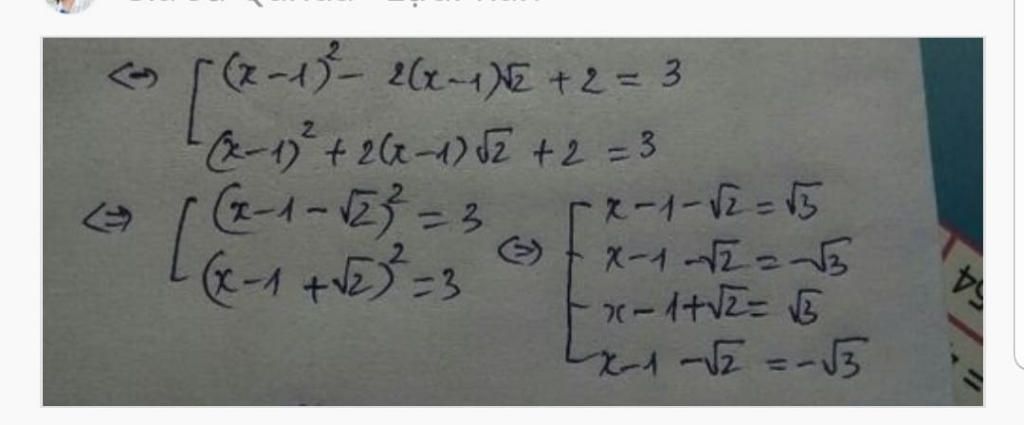 ⇔ [ (x-1)² - 2(x-1)√2 + 2 = 3
(x-1)² + 2(x-1)√2 + 2 = 3
⇔ [ (x-1-√2)² = 3
(x-1+√2)² = 3
⇔ [ x-1-√2 = √3
x-1-√2 = -√3
x-1+√2 = √3
x-1-√2 = -√3
54
=